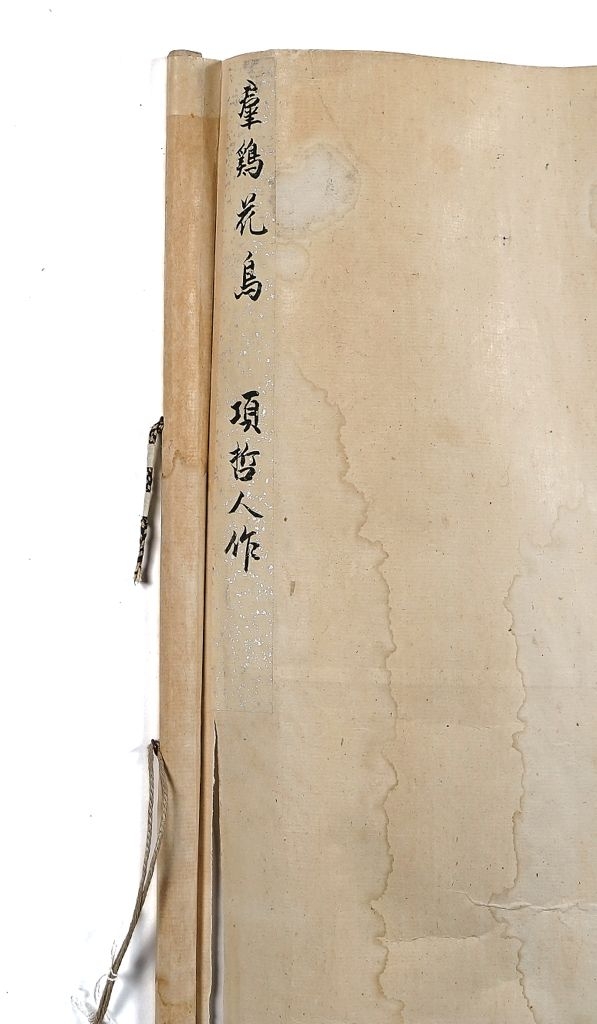 羣鷄花鳥 項哲人作